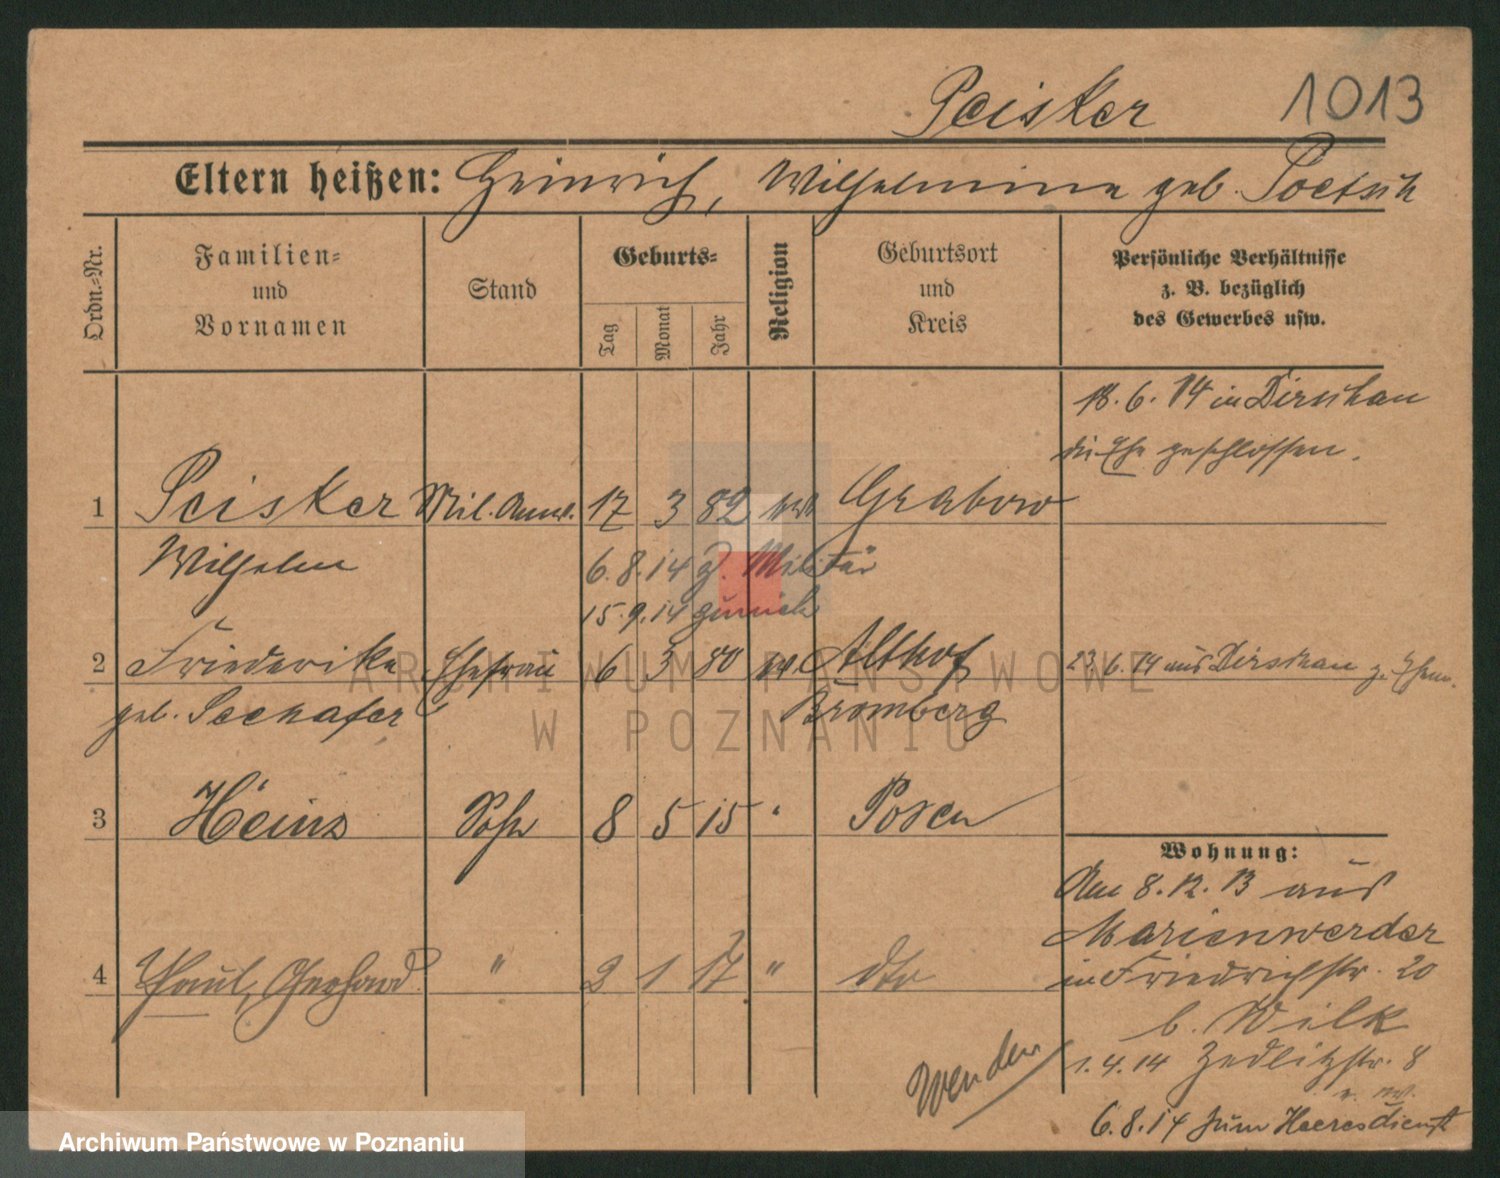 Peisker 1013
Eltern heißen: Heinrich, Wilhelmine geb. Poetsch
Ordn.-Nr.
Familien-
und
Vornamen
Stand
Geburts-
Tag
Monat
Jahr
Religion
Geburtsort
und
Kreis
Persönliche Verhältnisse
z. B. bezüglich
des Gewerbes usw.
18. 6. 14 in Dirschau
die Ehe geschlossen.
1 Peisker Mil. Anw. 17 3 82 Grabow
Wilhelm
6. 8. 14 z. Militär
15. 9. 14 zurück
2 Friederike Ehefrau 6 3 80 Althof
23. 6. 14 aus Dirschau z. Ehem.
geb. Seehafer Bromberg
3 Heinz Sohn 8 5 15 " Posen
4 Paul, Gerhard " 2 1 17 " dto
Wohnung:
Am 8. 12. 13 aus
Marienwerder
in Friedrichstr. 20
b. Wilk
1. 4. 14 Zedlitzstr. 8
6. 8. 14 zum Heeresdienst
Wenden
ARCHIWUM PAŃSTWOWE
W POZNANIU
Archiwum Państwowe w Poznaniu